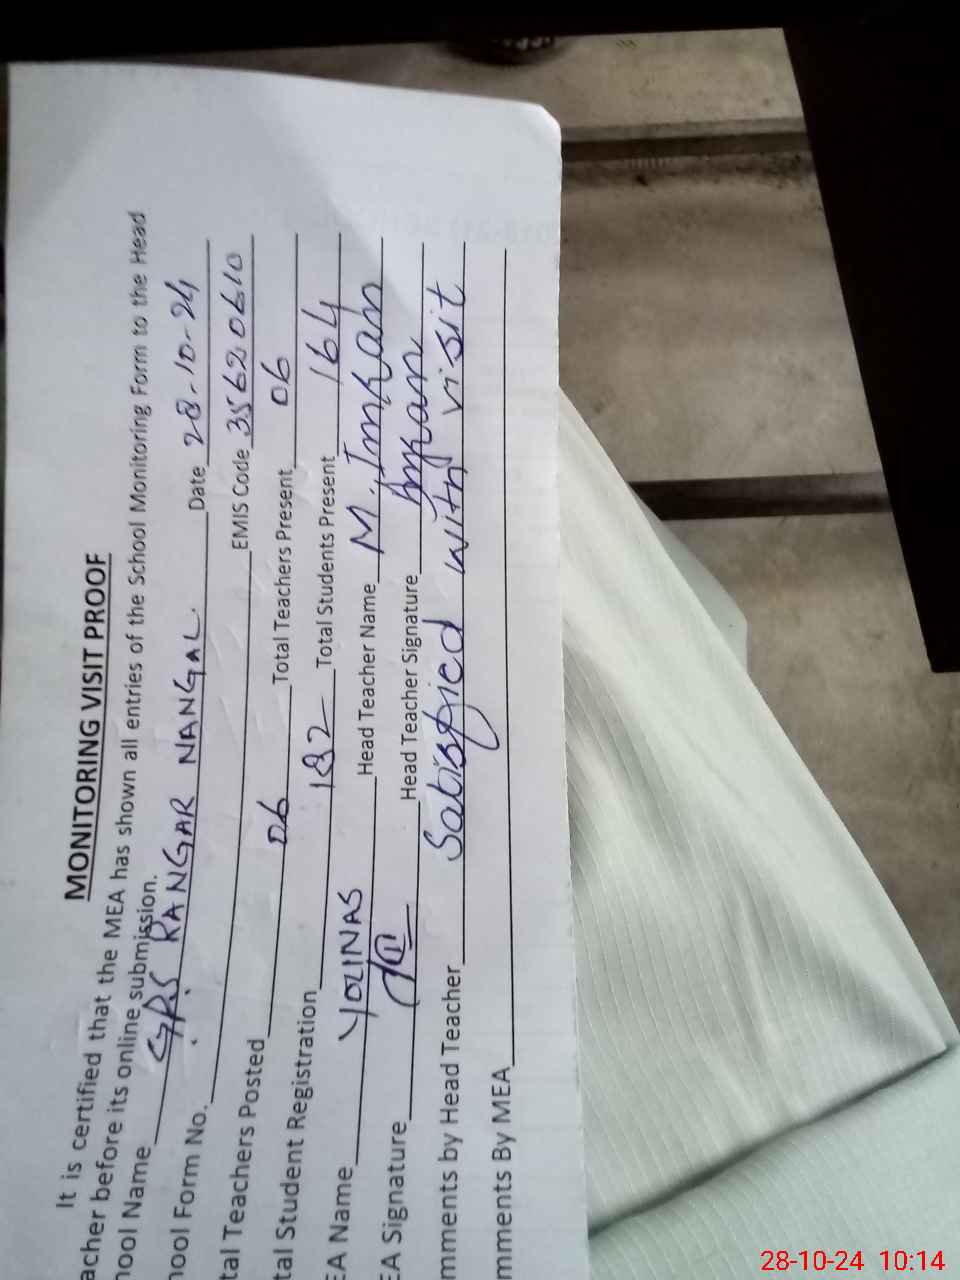 MONITORING VISIT PROOF
It is certified that the MEA has shown all entries of the School Monitoring Form to the Head
acher before its online submission.
hool Name GPS RANGAR NANGAL Date 28-10-24
hool Form No. EMIS Code 35620610
tal Teachers Posted 06 Total Teachers Present 06
tal Student Registration 182 Total Students Present 164
EA Name YOUNAS Head Teacher Name M. Imran
EA Signature Head Teacher Signature Imran
mments by Head Teacher Satisfied with visit
mments By MEA
28-10-24 10:14